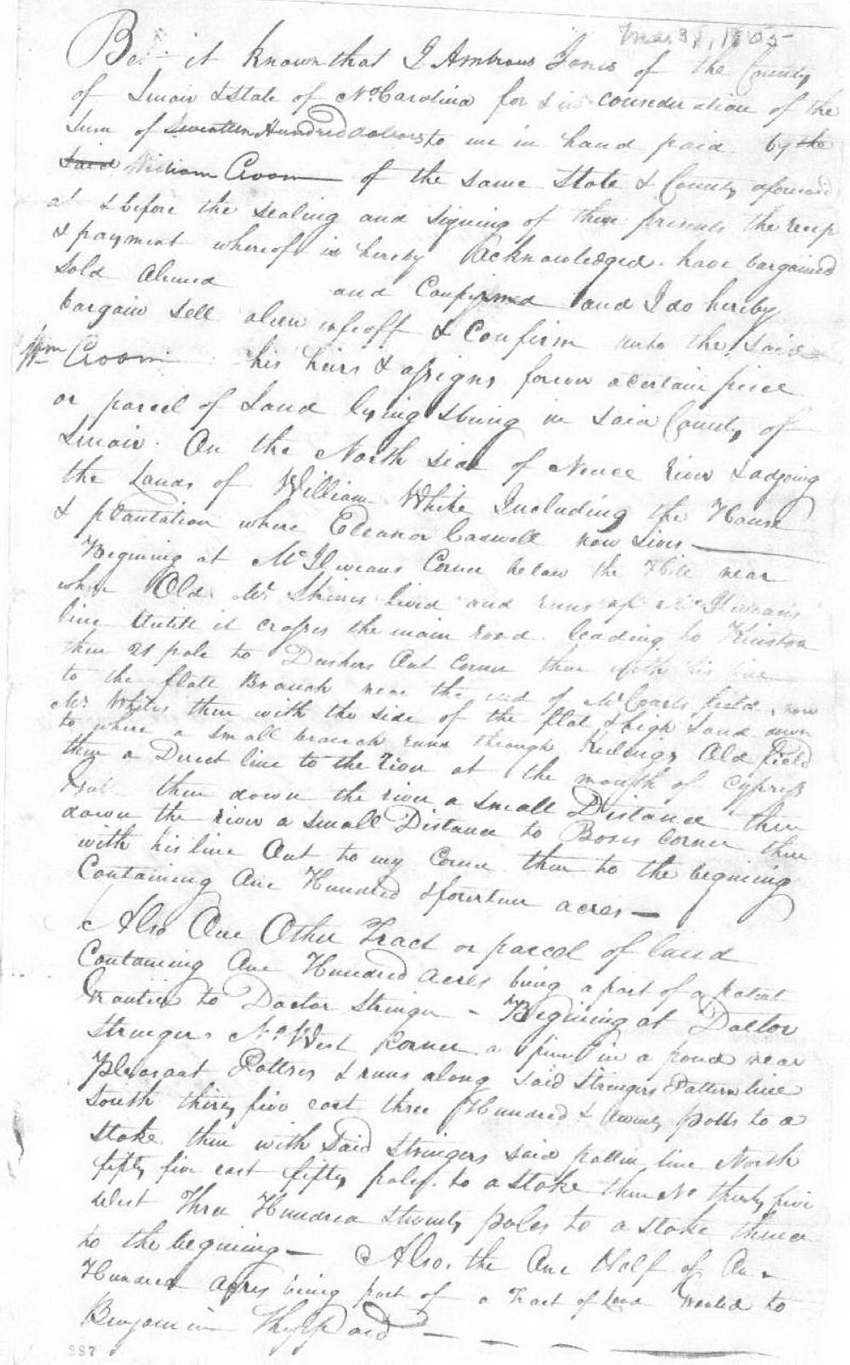 Mar 31, 1805
Be it known that I Ambrous Jones of the County
of Lenoir & State of No Carolina for & in consideration of the
Sum of Seventeen Hundred dolars to me in hand paid by the
said William Croom of the same State & County aforesaid
at & before the sealing and signing of these presents the recep
& payment whereoff is hereby Acknowledged have bargained
Sold aliened and Confirmed and I do hereby
bargain sell alien infeoff & Confirm unto the said
Wm Croom his heirs & assigns forever a certain piece
or parcel of Land lying & being in said County of
Lenoir. On the North side of Neuce River & adgoing
the Lands of William White Including the House
& plantation where Eleanor Caswell now lives
Begining at McIlweans Corner below the Hill near
where Old Mr Shines lived and runs up McIlweans
line Untill it crosses the main road leading to Kinston
then 21 pole to Dashers Out Corner then with his line
to the flate Branch near the end of McCoarls field now
Mr Whites then with the side of the flat & high Land down
to where a small branch runs through Old field
then a Direct line to the River at the mouth of Cypress
then down the river a small Distance then
down the river a small Distance to Corner then
with his line Out to my Corner then to the begining
Containing One Hundred & fourteen acres
Also One Other Tract or parcel of land
Containing One Hundred acres being a part of a patent
to Doctor Stringer - Begining at Docttor
Stringers No West Corner a pine in a pond near
Pleasant Potters & runs along said Stringers Pattern line
South thirty five east three Hundred & twenty polls to a
stake then with Said Stringers said patten line North
fifty five east fifty poles to a stake then No thirty five
West Three Hundred & twenty poles to a stake thence
to the begining - Also, the One Half of One
Hundred acres being part of a Tract of Land to
Benjamin Sheppard
997